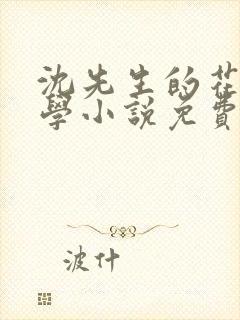 沈先生的花
學小說免費
波什